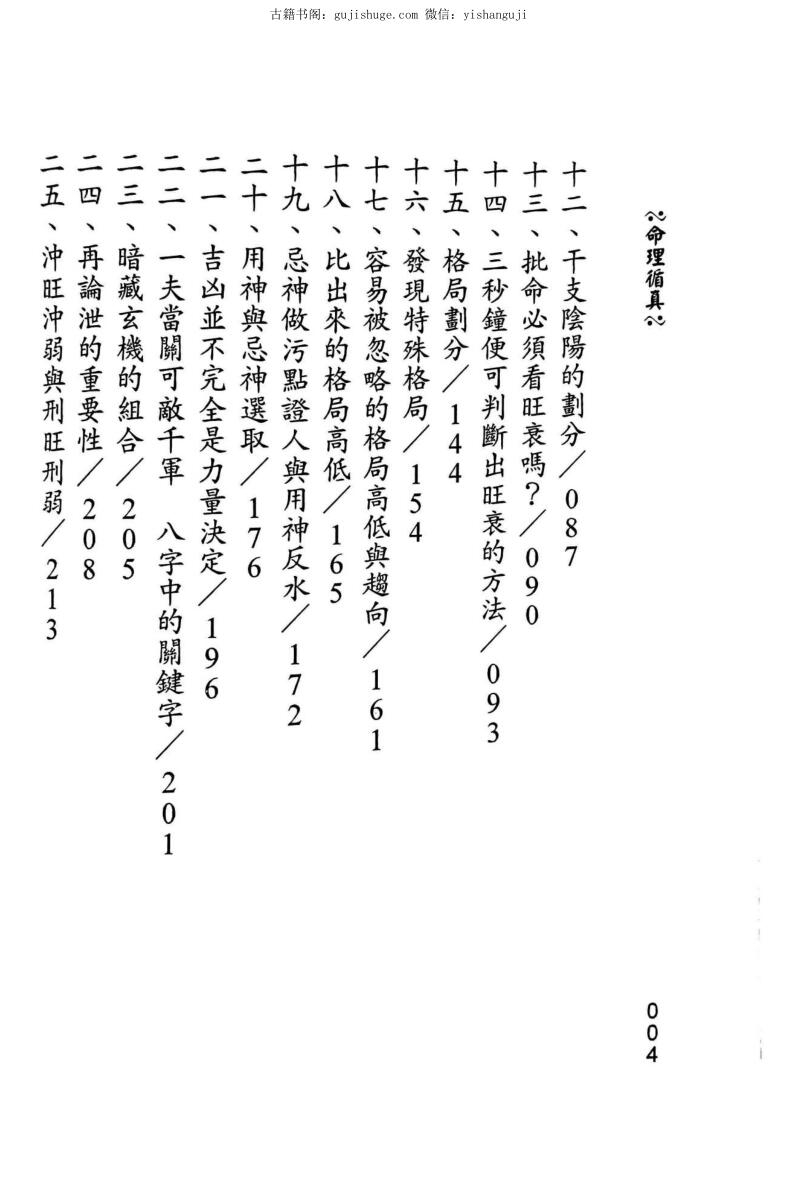 古籍书阁：gujishuge.com 微信：yishanguji
命理循真
十二、干支陰陽的劃分／087
十三、批命必須看旺衰嗎？／090
十四、三秒鐘便可判斷出旺衰的方法／093
十五、格局劃分／144
十六、發現特殊格局／154
十七、容易被忽略的格局高低與趨向／161
十八、比出來的格局高低／165
十九、忌神做污點證人與用神反水／172
二十、用神與忌神選取／176
二一、吉凶並不完全是力量決定／196
二二、一夫當關可敵千軍　八字中的關鍵字／201
二三、暗藏玄機的組合／205
二四、再論泄的重要性／208
二五、沖旺沖弱與刑旺刑弱／213
004